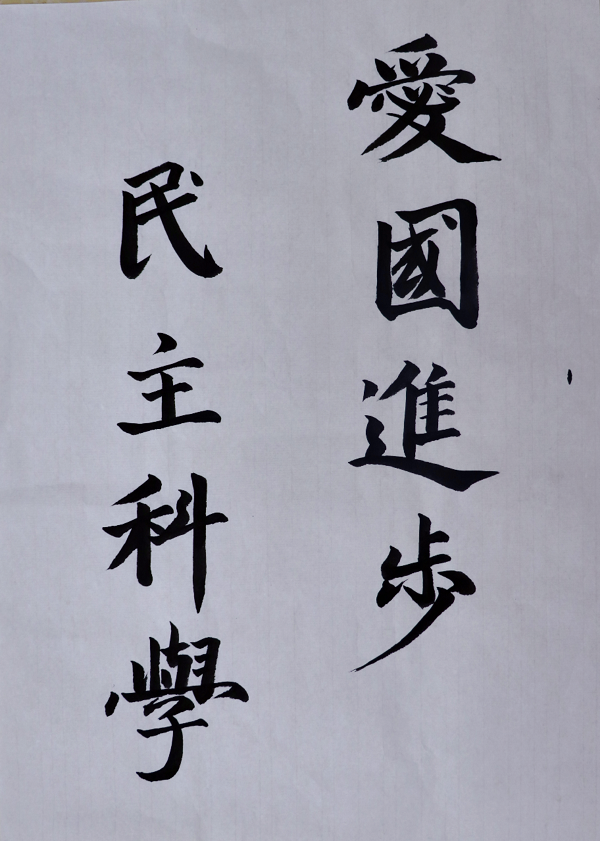 愛國進步
民主科學